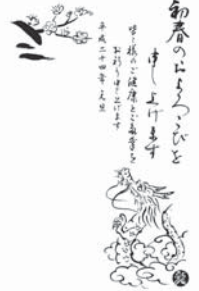 初春のおよろこびを
申し上げます
皆々様のご健康とご多幸を
お祈り申し上げます
平成二十四年 元旦